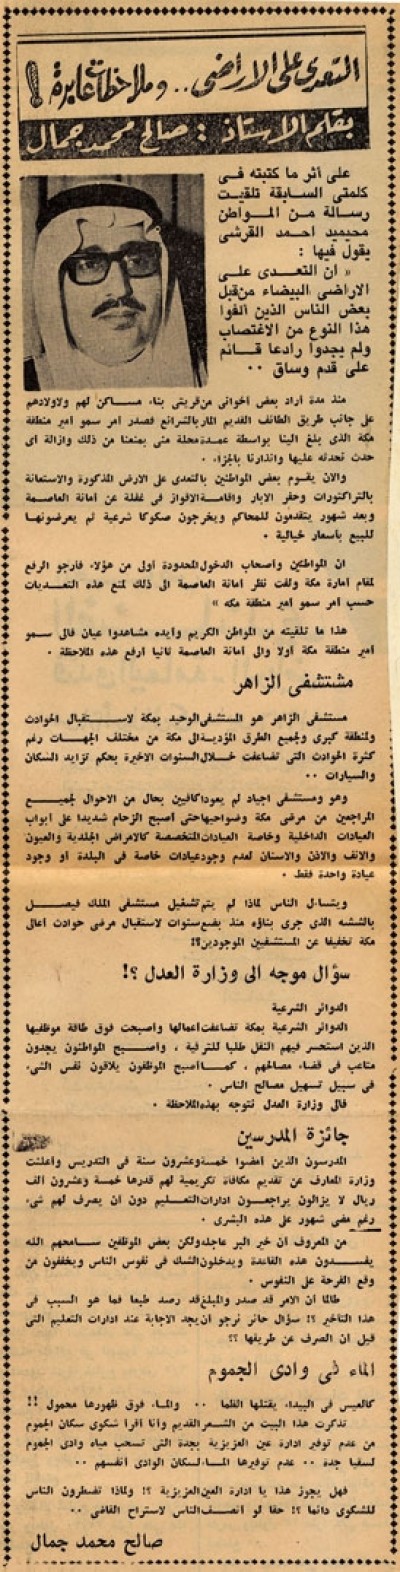 التعدى على الاراضى .. وملاحظات عابرة !
بقلم الاستاذ : صالح محمد جمال
على أثر ما كتبته فى
كلمتى السابقة تلقيت
رسالة من المواطن
احمد القرشى
يقول فيها :
« ان التعدى على
الاراضى البيضاء من قبل
بعض الناس الذين ألفوا
هذا النوع من الاغتصاب
ولم يجدوا رادعا قائم
على قدم وساق ..
منذ مدة أراد بعض أخوانى من قريتى بناء مساكن لهم ولاولادهم
على جانب طريق الطائف القديم المار بالشرائع فصدر أمر سمو أمير منطقة
مكة الذى بلغ الينا بواسطة عمدة محلة منى بمنعنا من ذلك وازالة أى
حدث نحدثه عليها وانذارنا بالجزاء .
والآن يقوم بعض المواطنين بالتعدى على الارض المذكورة والاستعانة
بالتراكتورات وحفر الابار واقامة فى غفلة عن أمانة العاصمة
وبعد شهور يتقدمون للمحاكم ويخرجون صكوكا شرعية ثم يعرضونها
للبيع بأسعار خيالية .
ان المواطنين وأصحاب الدخول المحدودة أولى من هؤلاء فأرجو الرفع
لمقام أمارة مكة ولفت نظر أمانة العاصمة الى ذلك لمنع هذه التعديات
حسب أمر سمو أمير منطقة مكة »
هذا ما تلقيته من المواطن الكريم وأيده مشاهدوا عيان فالى سمو
أمير منطقة مكة أولا والى أمانة العاصمة ثانيا أرفع هذه الملاحظة .
مستشفى الزاهر
مستشفى الزاهر هو المستشفى الوحيد بمكة لاستقبال الحوادث
ولمنطقة كبرى ولجميع الطرق المؤدية الى مكة من مختلف الجهات رغم
كثرة الحوادث التى تضاعفت خلال السنوات الاخيرة بحكم تزايد السكان
والسيارات ..
وهو ومستشفى اجياد لم يعودا كافيين بحال من الاحوال لجميع
المراجعين من مرضى مكة وضواحيها حتى أصبح الزحام شديدا على أبواب
العيادات الداخلية وخاصة العيادات المتخصصة كالامراض الجلدية والعيون
والانف والاذن والاسنان لعدم وجود عيادات خاصة فى البلدة أو وجود
عيادة واحدة فقط .
ويتساءل الناس لماذا لم يتم تشغيل مستشفى الملك فيصل
بالششه الذى جرى بناؤه منذ بضع سنوات لاستقبال مرضى حوادث أعالى
مكة تخفيفا عن المستشفيين الموجودين ؟!
سؤال موجه الى وزارة العدل ؟!
الدوائر الشرعية
الدوائر الشرعية بمكة تضاعفت أعمالها وأصبحت فوق طاقة موظفيها
الذين استحر فيهم النقل طلبا للترقية ، وأصبح المواطنون يجدون
متاعب فى قضاء مصالحهم ، كما أصبح الموظفون يلاقون نفس الشىء
فى سبيل تسهيل مصالح الناس .
فالى وزارة العدل نتوجه بهذه الملاحظة .
جائزة المدرسين
المدرسون الذين أمضوا خمسة وعشرون سنة فى التدريس وأعلنت
وزارة المعارف عن تقديم مكافأة تكريمية لهم قدرها خمسة وعشرون الف
ريال لا يزالون يراجعون ادارات التعليم دون ان يصرف لهم شىء
رغم مضى شهور على هذه البشرى .
من المعروف أن خير البر عاجله ولكن بعض الموظفين سامحهم الله
يفسدون هذه القاعدة ويدخلون الشك فى نفوس الناس ويخففون من
وقع الفرحة على النفوس .
طالما أن الامر قد صدر والمبلغ قد رصد طبعا فما هو السبب فى
هذا التأخير ؟! سؤال حائر نرجو أن يجد الاجابة عند ادارات التعليم التى
قيل أن الصرف عن طريقها ؟؟
الماء فى وادى الجموم
كالعيس فى البيداء يقتلها الظما .. والماء فوق ظهورها محمول !!
تذكرت هذا البيت من الشعر القديم وأنا أقرأ شكوى سكان الجموم
من عدم توفير ادارة عين العزيزية بجدة التى تسحب مياه وادى الجموم
لسقيا جدة .. عدم توفيرها الماء لسكان الوادى أنفسهم ..
فهل يجوز هذا يا ادارة العين العزيزية ؟! ولماذا تضطرون الناس
للشكوى دائما ؟! حقا لو أنصف الناس لاستراح القاضى ..
صالح محمد جمال